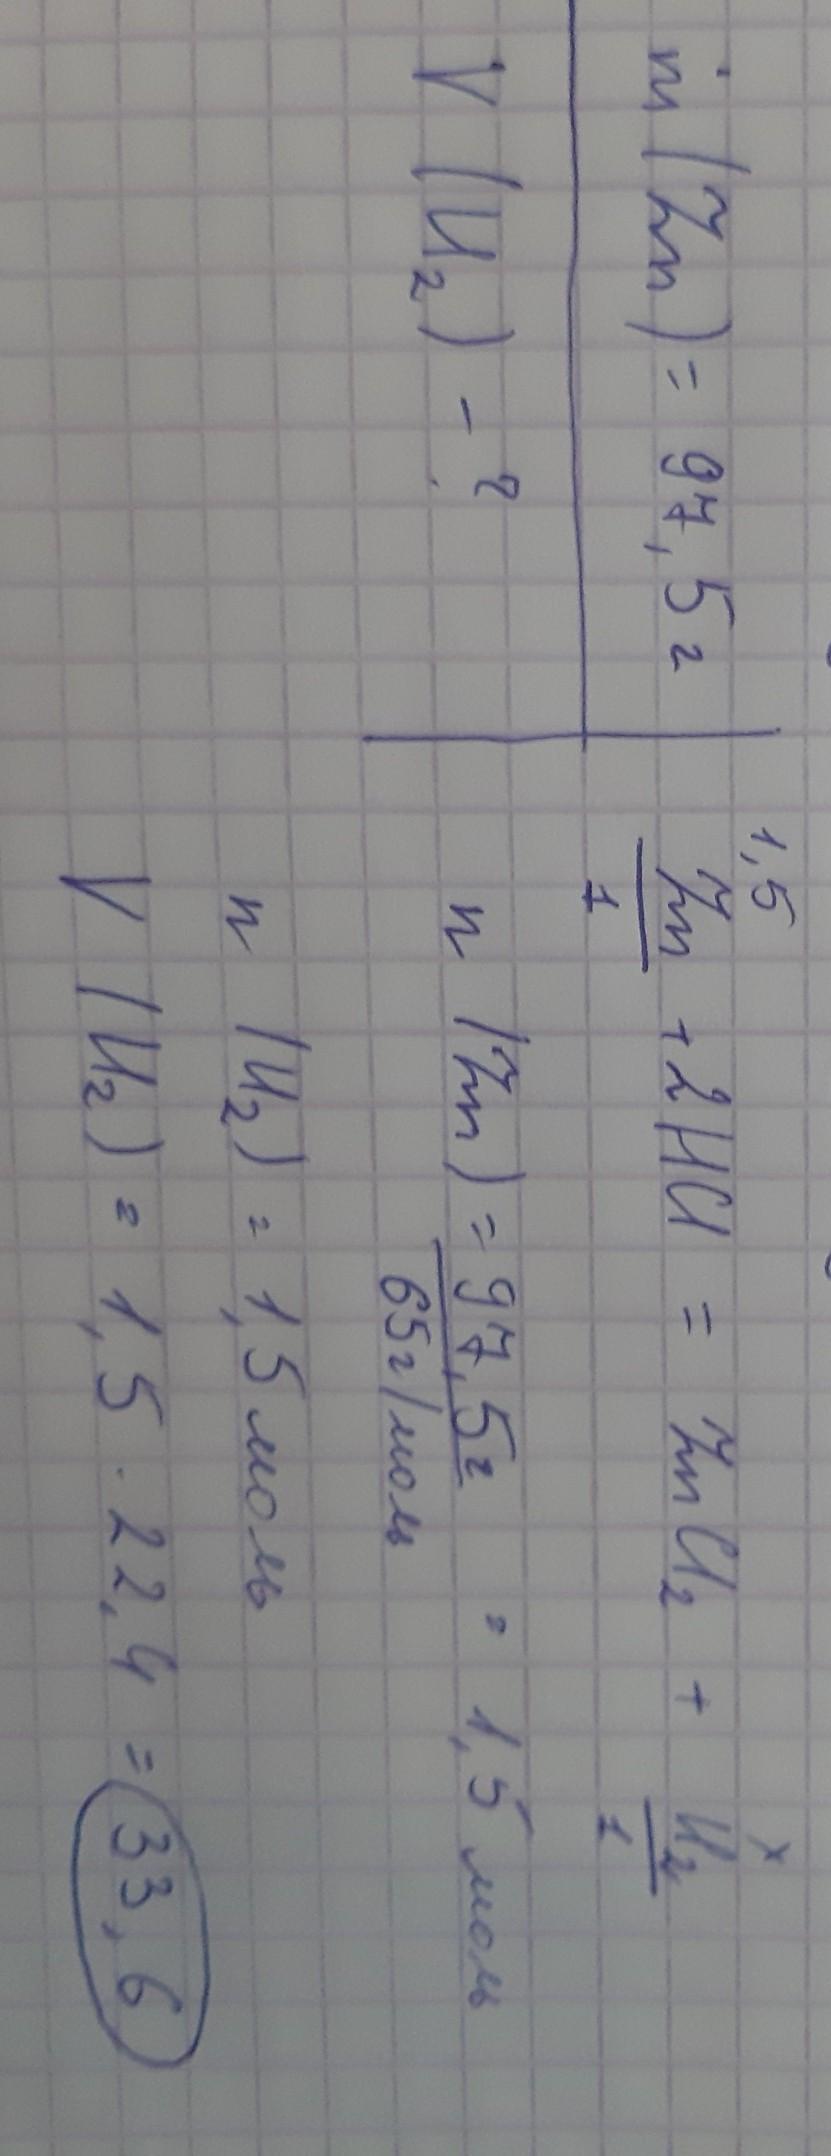 m (Zn) = 97,5 г
V (H₂) - ?
1,5 x
Zn + 2HCl = ZnCl₂ + H₂
1 1
n (Zn) = 97,5г = 1,5 моль
65г/моль
n (H₂) = 1,5 моль
V (H₂) = 1,5 · 22,4 = 33,6